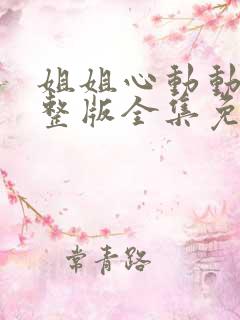 姐姐心动动
整版全集免
常青路